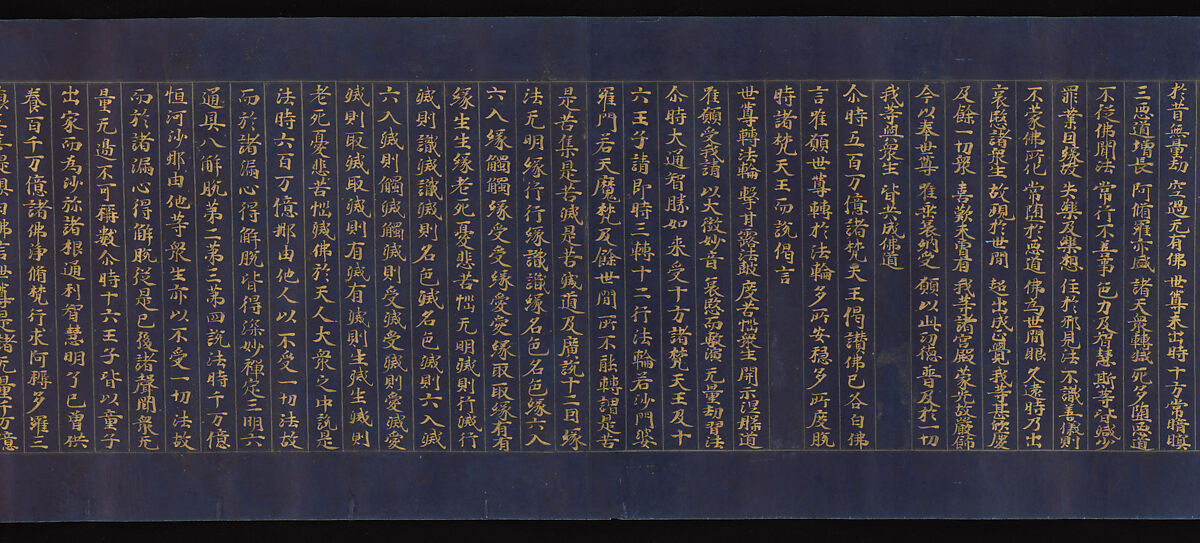 於昔無量劫 空過无有佛 世尊未出時 十方常暗瞑
三惡道增長 阿脩羅亦盛 諸天衆轉減 死多墮惡道
不從佛聞法 常行不善事 色力及智慧 斯等皆減少
罪業因緣故 失樂及樂想 住於邪見法 不識善儀則
不蒙佛所化 常墮於惡道 佛為世間眼 久遠時乃出
哀愍諸衆生 故現於世間 超出成正覺 我等甚欣慶
及餘一切衆 喜歎未曾有 我等諸宮殿 蒙光故嚴飾
今以奉世尊 唯垂哀納受 願以此功德 普及於一切
我等與衆生 皆共成佛道
尒時五百万億諸梵天王偈讚佛已各白佛
言唯願世尊轉於法輪多所安穩多所度脫
時諸梵天王而說偈言
世尊轉法輪 擊甘露法鼓 度苦惱衆生 開示涅槃道
唯願受我請 以大微妙音 哀愍而敷演 无量劫習法
尒時大通智勝如來受十方諸梵天王及十
六王子請即時三轉十二行法輪若沙門婆
羅門若天魔梵及餘世間所不能轉謂是苦
是苦集是苦滅是苦滅道及廣說十二因緣
法无明緣行行緣識識緣名色名色緣六入
六入緣觸觸緣受受緣愛愛緣取取緣有有
緣生生緣老死憂悲苦惱无明滅則行滅行
滅則識滅識滅則名色滅名色滅則六入滅
六入滅則觸滅觸滅則受滅受滅則愛滅愛
滅則取滅取滅則有滅有滅則生滅生滅則
老死憂悲苦惱滅佛於天人大衆之中說是
法時六百万億那由他人以不受一切法故
而於諸漏心得解脫皆得深妙禪定三明六
通具八解脫第二第三第四說法時千万億
恒河沙那由他等衆生亦以不受一切法故
而於諸漏心得解脫從是已後諸聲聞衆无
量无邊不可稱數尒時十六王子皆以童子
出家而為沙彌諸根通利智慧明了已曾供
養百千万億諸佛淨脩梵行求阿耨多羅三
藐三菩提俱白佛言世尊是諸无量千万億